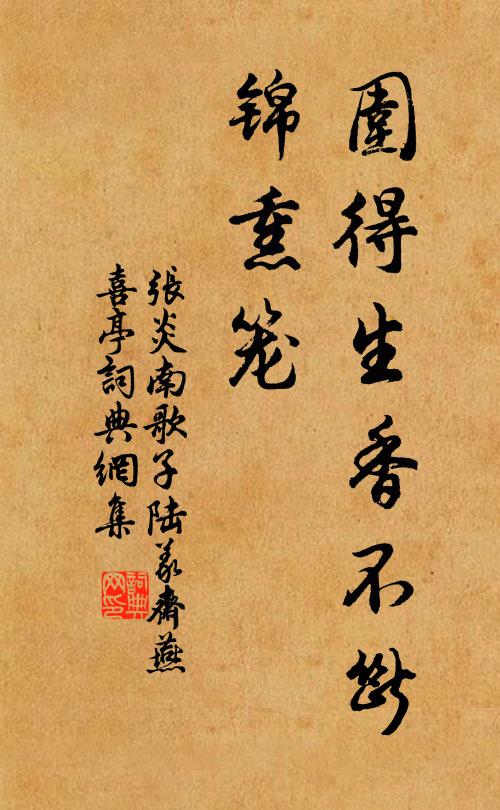 圍得生香不斷
锦熏笼
張炎南歌子陆義齋燕
喜亭詞典網集
詞典网印